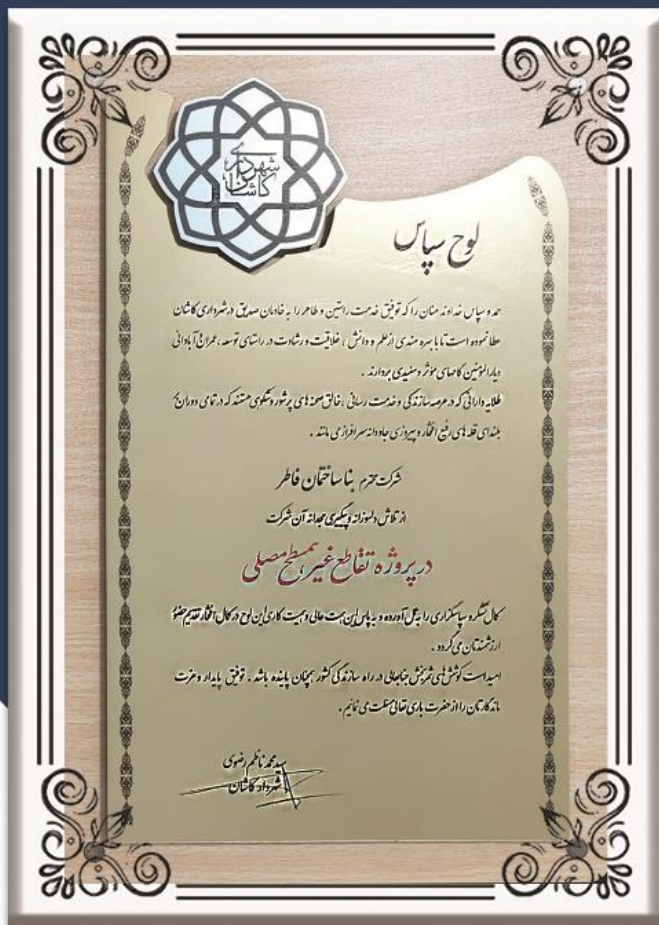 شهرداری کاشان
لوح سپاس
حمد و سپاس خداوند منان را که توفیق خدمت راستین و طاهر را به خادمان صدیق در شهرداری کاشان
عطا نموده است تا با بهره مندی از علم و دانش ، خلاقیت و رشادت در راستای توسعه ، عمران و آبادانی
دیارالمؤمنین گامهای مؤثر و مفیدی بردارند .
طلایه دارانی که در عرصه سازندگی و خدمت رسانی ، خالق صحنه های پرشور و شکوهی هستند که در تمامی دوران بر
بلندای قله های رفیع افتخار و پیروزی جاودانه سرافراز می مانند .
شرکت محترم بناساختمان فاطر
از تلاش دلسوزانه و پیگیری مجدانه آن شرکت
در پروژه تقاطع غیر همسطح مصلی
کمال تشکر و سپاسگزاری را بعمل آورده و به پاس این همت عالی و جمیت کاری این لوح در کمال افتخار تقدیم حضور
ارزشمندتان می گردد .
امید است کوشش های ثمربخش جنابعالی در راه سازندگی کشور همچنان پاینده باشد . توفیق پایدار و عزت
ماندگارتان را از حضرت باری تعالی مسئلت می نمائیم .
سید محمد ناظم رضوی
شهردار کاشان